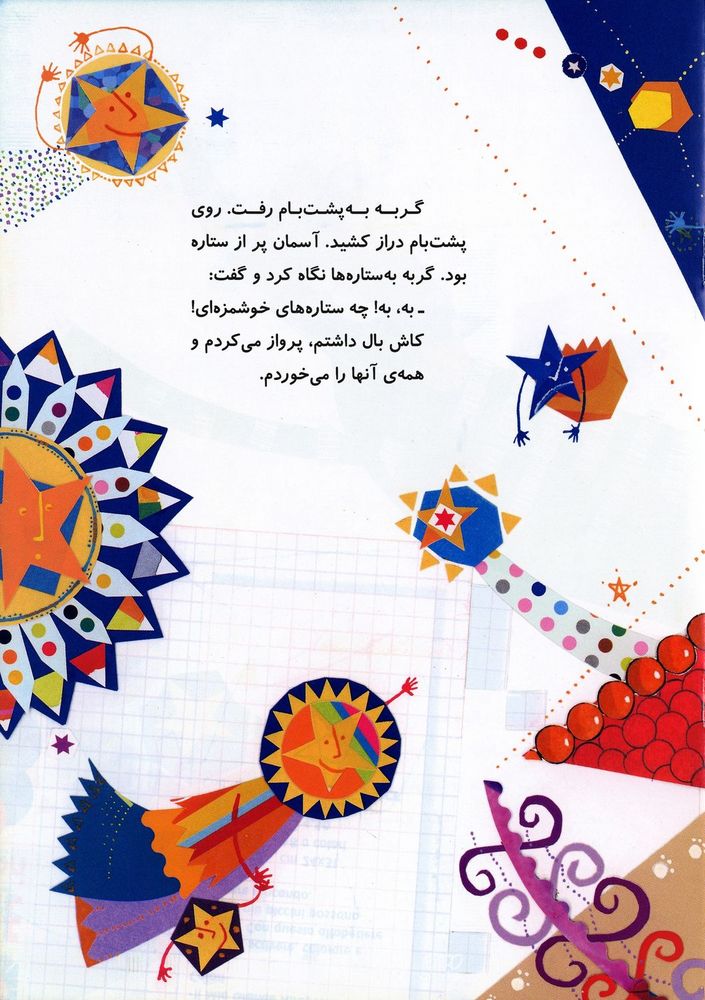 گربه به‌پشت‌بام رفت. روی
پشت‌بام دراز کشید. آسمان پر از ستاره
بود. گربه به‌ستاره‌ها نگاه کرد و گفت:
ـ به، به! چه ستاره‌های خوشمزه‌ای!
کاش بال داشتم، پرواز می‌کردم و
همه‌ی آنها را می‌خوردم.